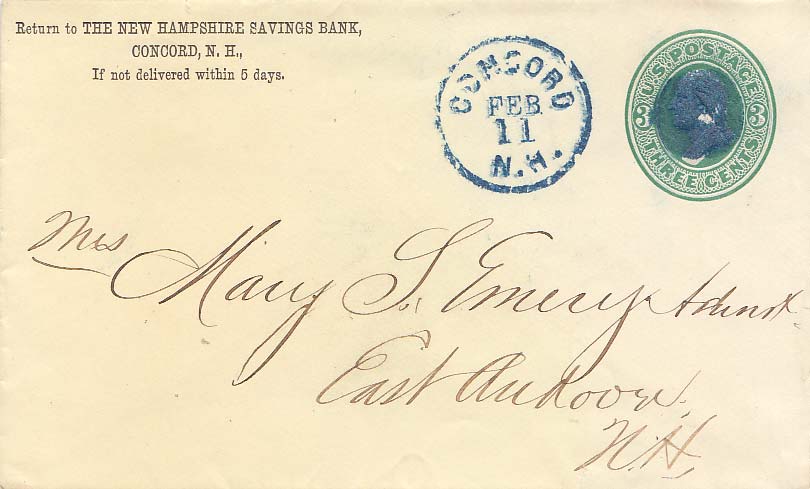 Return to THE NEW HAMPSHIRE SAVINGS BANK,
CONCORD, N. H.,
If not delivered within 5 days.
CONCORD
FEB
11
N.H.
U.S. POSTAGE
3 3
THREE CENTS
Mrs Mary S. Emery Admx
East Andover
N.H,